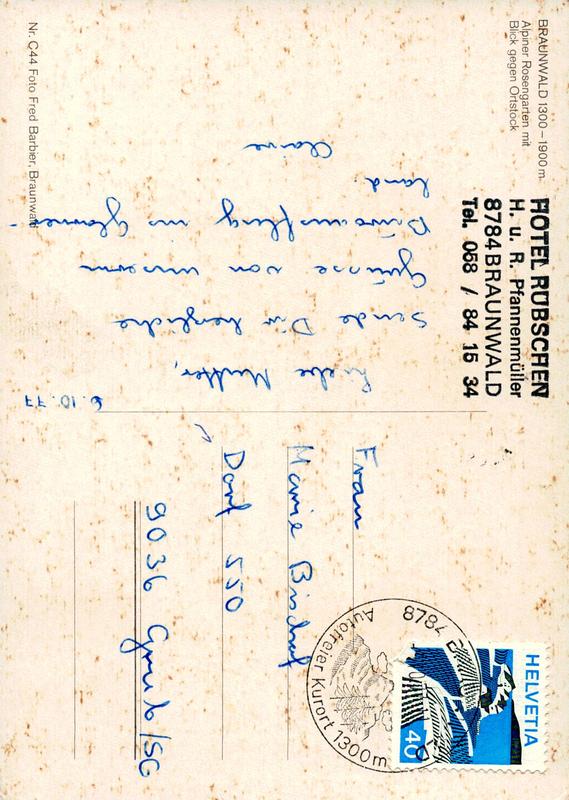 BRAUNWALD 1300 – 1900 m.
Alpiner Rosengarten mit
Blick gegen Ortstock
HOTEL RUBSCHEN
H. u. R. Pfannenmüller
8784 BRAUNWALD
Tel. 058 / 84 15 34
6.10.77
Liebe Mutter,
sende Dir herzliche
Grüsse von unserm
Büroausflug ins Glarner-
land.
Claire
Nr. C44 Foto Fred Barbier, Braunwald
HELVETIA
40
8784 B
Autofreier Kurort 1300 m
Frau
Marie Bischof
Dorf 550
9036 Grub/SG